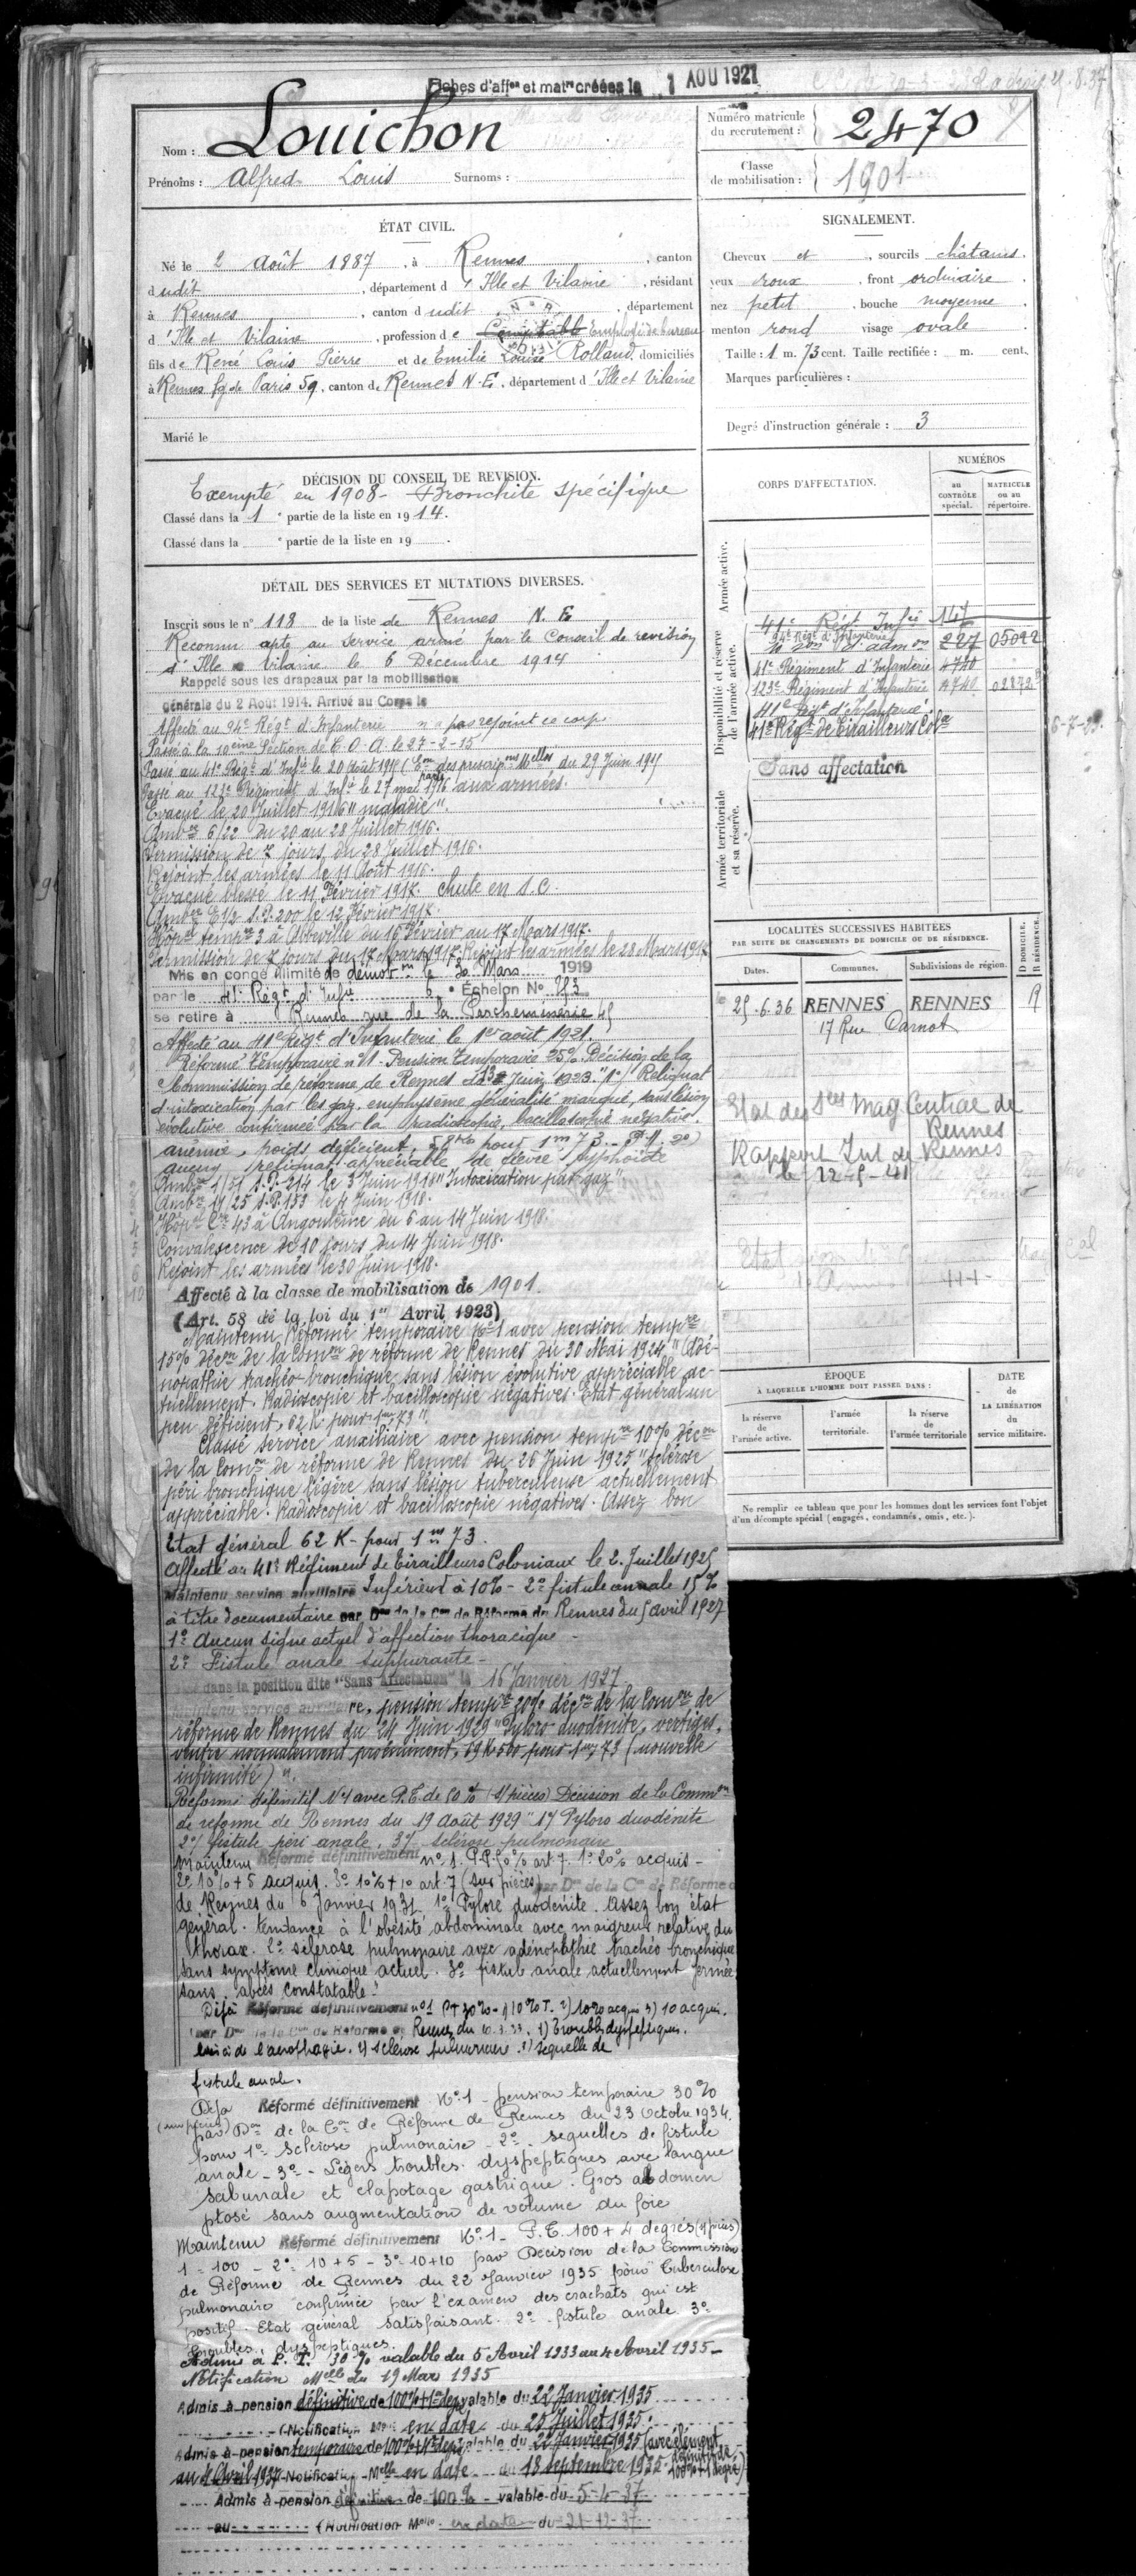 Fiches d'affon et matle créées le 1 AOU 1921
Nom : Louichon
Prénoms : Alfred Louis Surnoms :
Numéro matricule du recrutement : 2470
Classe de mobilisation : 1901
ÉTAT CIVIL.
Né le 2 août 1887, à Rennes, canton
dudit, département d'Ille et Vilaine, résidant
à Rennes, canton dudit, département
d'Ille et Vilaine, profession de Comptable Employé de bureau
fils de René Louis Pierre et de Emilie Louise Rolland, domiciliés
à Rennes fg de Paris 59, canton de Rennes N-E, département d'Ille et Vilaine
Marié le
SIGNALEMENT.
Cheveux et, sourcils châtains.
yeux roux, front ordinaire.
nez petit, bouche moyenne
menton rond visage ovale
Taille : 1 m. 73 cent. Taille rectifiée : m. cent.
Marques particulières :
Degré d'instruction générale : 3
DÉCISION DU CONSEIL DE REVISION.
Exempté en 1908 - Bronchite spécifique
Classé dans la 1e partie de la liste en 1914.
Classé dans la e partie de la liste en 19 .
DÉTAIL DES SERVICES ET MUTATIONS DIVERSES.
Inscrit sous le n° 118 de la liste de Rennes N. E
Reconnu apte au service armé par le Conseil de revision
d'Ille & Vilaine le 6 Décembre 1914
Rappelé sous les drapeaux par la mobilisation
générale du 2 Août 1914. Arrivé au Corps le
Affecté au 94e Régt d'Infanterie n'a pas rejoint ce corps
Passé à la 10ème Section de C. O. A. le 27-2-15
Passé au 41e Régt d'Infie le 20 Août 1915 (Eon des prescripons Melles du 29 Juin 1915
Passé au 123e Régiment d'Infie le 27 mai 1916 parti aux armées.
Evacué le 20 Juillet 1916 "maladie".
Ambce 6/22 du 20 au 28 Juillet 1916.
Permission de 7 jours du 28 Juillet 1916.
Rejoint les armées le 11 Août 1916.
Evacué blessé le 11 Février 1917. chute en S.C.
Ambce E 1/2 S.P. 200 le 12 Février 1917.
Hôpal tempre 3 à Abbeville du 16 Février au 17 Mars 1917.
Permission de 7 jours du 17 Mars 1917. Rejoint les armées le 28 Mars 1917
Mis en congé illimité de démobon le 30 Mars 1919
par le 41e Régt d'Infie 6e Échelon No 213
se retire à Rennes rue de la Parcheminerie 45
Affecté au 41e Régt d'Infanterie le 1er août 1921.
Réformé temporaire n° 1 - Pension temporaire 35% Décision de la
Commission de réforme de Rennes du 13 Juin 1923. "1°) Reliquat
d'intoxication par les gaz, emphysème généralisé marqué, sans lésion
évolutive confirmée par la radioscopie, bacilloscopie négative.
anémie, poids déficient, 58 kos pour 1m73. P.M. 2°)
aucun reliquat appréciable de fièvre typhoïde
Ambce 1/51 S.P. 214 le 3 Juin 1918 "Intoxication par gaz"
Ambce 14/25 S.P. 153 le 4 Juin 1918.
Hôpal Cre 43 à Angoulême du 6 au 14 Juin 1918.
Convalescence de 10 jours du 14 Juin 1918.
Rejoint les armées le 30 Juin 1918.
Affecté à la classe de mobilisation de 1901.
(Art. 58 de la loi du 1er Avril 1923)
Maintenu Réformé temporaire No 1 avec pension tempre
15% décon de la Comon de réforme de Rennes du 30 Mai 1924 "Adé-
nopathie trachéo-bronchique sans lésion évolutive appréciable ac-
tuellement. Radioscopie et bacilloscopie négatives. Etat général un
peu déficient, 62 K. pour 1m73".
Classé service auxiliaire avec pension tempre 10% décon
de la Comon de réforme de Rennes du 26 Juin 1925 "sclérose
péri bronchique légère sans lésion tuberculeuse actuellement
appréciable. Radioscopie et bacilloscopie négatives. Assez bon
Etat général 62 K - pour 1m73.
Affecté au 41e Régiment de Tirailleurs Coloniaux le 2 Juillet 1925
Maintenu service auxiliaire Inférieur à 10% - 2° fistule annale 15%
à titre documentaire par Don de la Con de Réforme de Rennes du 5 avril 1927
1° Aucun signe actuel d'affection thoracique -
2° Fistule anale suppurante -
dans la position dite "Sans Affectation" le 16 Janvier 1927
Maintenu service auxiliaire, pension tempre 20% décon de la Comon de
réforme de Rennes du 24 Juin 1929 "Pyloro duodénite, vertiges,
ventre normalement proéminent, 69 K 500 pour 1m73 (nouvelle
infirmité)".
Réformé définitif No 1 avec P.T. de 50% (s/pièces) Décision de la Common
de réforme de Rennes du 19 Août 1929 "1°/ Pyloro duodénite
2°/ fistule péri anale, 3°/ sclérose pulmonaire
Maintenu Réformé définitivement n° 1. P.P. 50% art. 7. 1° 20% acquis -
2° 10% + 5 acquis. 3° 10% + 10 art. 7 (sur pièces) par Don de la Con de Réforme
de Rennes du 6 Janvier 1931 1° Pyloro duodénite. Assez bon état
général. tendance à l'obésité abdominale avec maigreur relative du
thorax. 2° sclérose pulmonaire avec adénopathie trachéo bronchique
sans symptôme clinique actuel. 3° fistule anale actuellement fermée
sans abcès constatable."
Déjà Réformé définitivement n° 1 PT 30% - 1) 10% T. 2) 10% acquis 3) 10 acquis.
par Don de la Con de Réforme de Rennes du 10.3.33. 1) Troubles dyspeptiques.
de l'aérophagie. 2) sclérose pulmonaire. 3) séquelle de
fistule anale.
Déjà Réformé définitivement No 1 - pension temporaire 30%
(sur pièces) par Don de la Con de Réforme de Rennes du 23 Octobre 1934.
pour 1° - Sclérose pulmonaire - 2° - séquelles de fistule
anale - 3° - Légers troubles dyspeptiques avec langue
saburrale et clapotage gastrique. Gros abdomen
ptosé sans augmentation de volume du foie
Maintenu Réformé définitivement No 1 - P.T. 100 + 4 degrés (s/pièces)
1° = 100 - 2° 10 + 5 - 3° 10 + 10 par Décision de la Commission
de Réforme de Rennes du 22 Janvier 1935 pour Tuberculose
pulmonaire confirmée par l'examen des crachats qui est
positif. Etat général satisfaisant. 2° - fistule anale 3°
Troubles dyspeptiques.
Admis à P. T. 30% valable du 5 Avril 1933 au 4 Avril 1935 -
Notification Melle du 19 Mars 1935
Admis à pension définitive de 100% + 1er deg valable du 22 Janvier 1935
(Notification Melle en date du 25 Juillet 1935.
Admis à pension temporaire de 100% + valable du 22 Janvier 1935 (avec élément
au 4 Avril 1937 Notification Melle en date du 18 septembre 1935 définitif de 100% + 1 degré)
Admis à pension définitive de 100% valable du 5-4-37
au (Notification Melle en date du 21-12-37
CORPS D'AFFECTATION.
NUMÉROS
au CONTRÔLE spécial.
MATRICULE ou au répertoire.
Armée active.
Disponibilité et réserve de l'armée active.
41e Régt Infie 147
94e Régt d'Infanterie
d'admon 227 05092
41e Régiment d'Infanterie 4740
123e Régiment d'Infanterie 4740 02272
41e Régt d'Infanterie.
41e Régt de Tirailleurs Colx
6-7-25.
Sans affectation
Armée territoriale et sa réserve.
LOCALITÉS SUCCESSIVES HABITÉES
PAR SUITE DE CHANGEMENTS DE DOMICILE OU DE RÉSIDENCE.
Dates. Communes. Subdivisions de région. D DOMICILE. R RÉSIDENCE.
le 25.6.36 RENNES RENNES R
17 Rue Carnot
Etat des Ses Mag Central de
Rennes
Rapport Int de Rennes
le 22-5-41
ÉPOQUE
À LAQUELLE L'HOMME DOIT PASSER DANS :
la réserve de l'armée active.
l'armée territoriale.
la réserve de l'armée territoriale
DATE de LA LIBÉRATION du service militaire.
Ne remplir ce tableau que pour les hommes dont les services font l'objet
d'un décompte spécial (engagés, condamnés, omis, etc.).